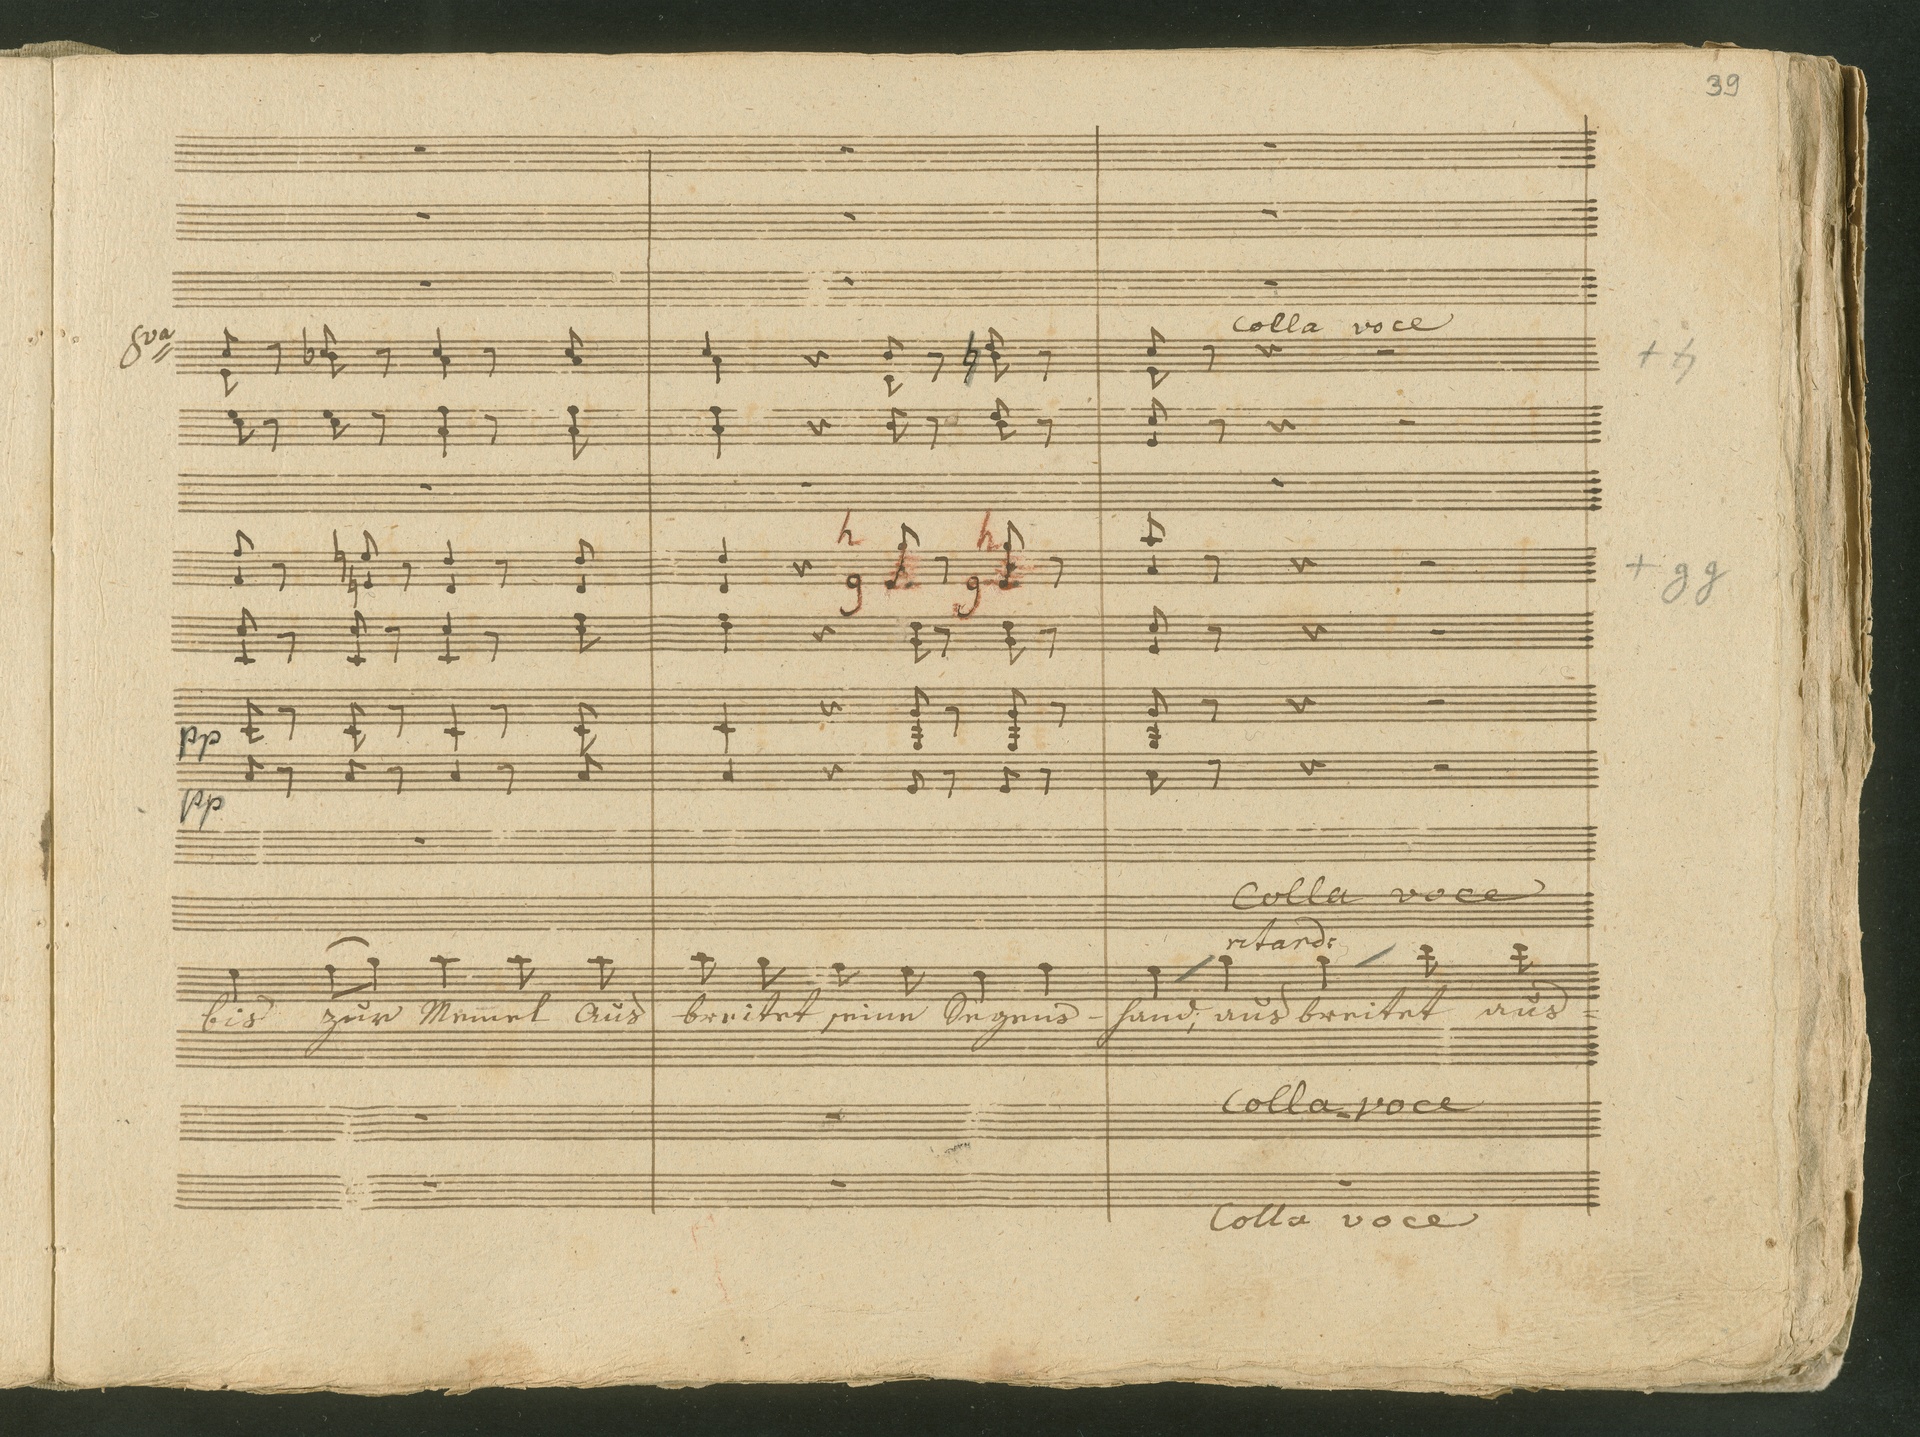 39
colla voce
8va
+ ♮
h h
g g
+ gg
pp
pp
Colla voce
ritard:
bis zur Memel Aus breitet seine Segens - hand, ausbreitet aus =
Colla voce
Colla voce